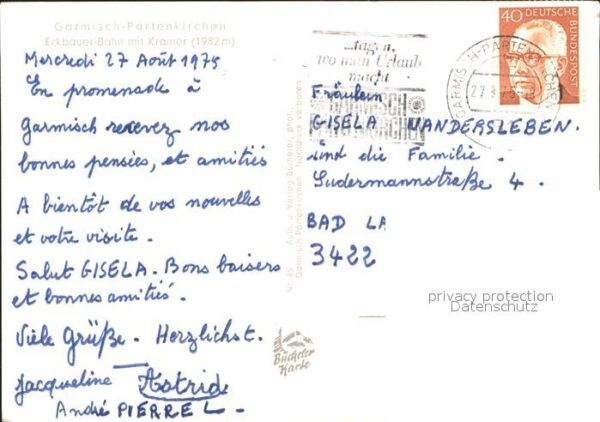 Garmisch-Partenkirchen
Eckbauer-Bahn mit Kramer (1982 m)
Mercredi 27 Août 1975
En promenade à
Garmisch recevez nos
bonnes pensées, et amitiés
A bientôt de vos nouvelles
et votre visite.
Salut GISELA. Bons baisers
et bonnes amitiés.
Viele Grüße. Herzlichst.
Jacqueline Astrid
André PIERREL.
Nr. 45 Aufn. u. Verlag Bücheler, phot.
Garmisch-Partenkirchen Nachdruck verboten
Bücheler
Karte
...tagen,
wo man Urlaub
macht
GARMISCH
PARTENKIRCHEN
40 DEUTSCHE
BUNDESPOST
GARMISCH-PARTENKIRCHEN
27.8.75
Fräulein
GISELA WANDERSLEBEN.
und die Familie.
Sudermannstraße 4.
BAD LA
3422
privacy protection
Datenschutz